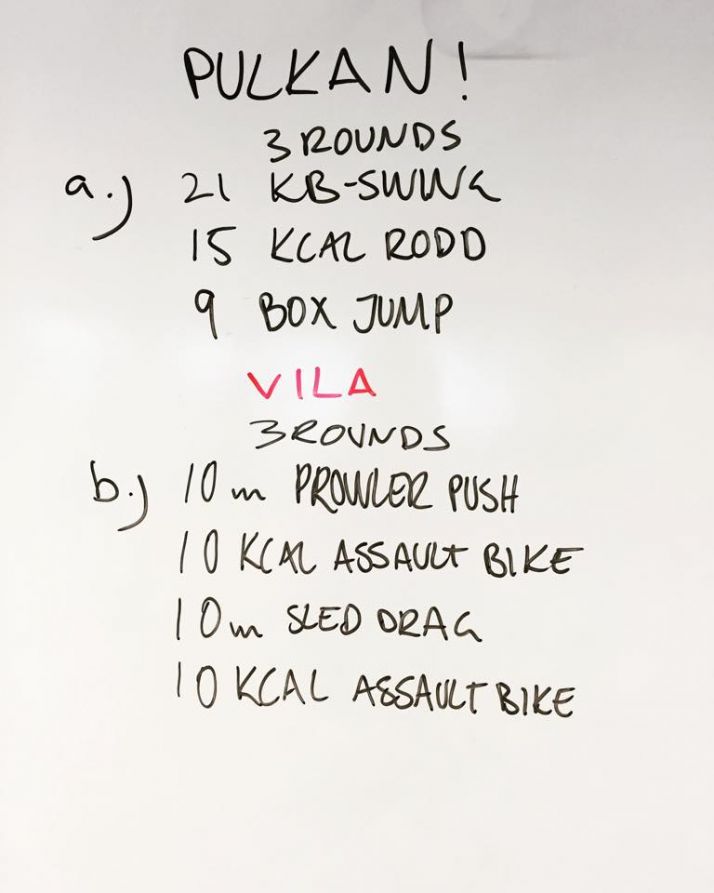 PULKAN!
3 ROUNDS
a.) 21 KB-SWING
15 KCAL RODD
9 BOX JUMP
VILA
3 ROUNDS
b.) 10 m PROWLER PUSH
10 KCAL ASSAULT BIKE
10 m SLED DRAG
10 KCAL ASSAULT BIKE